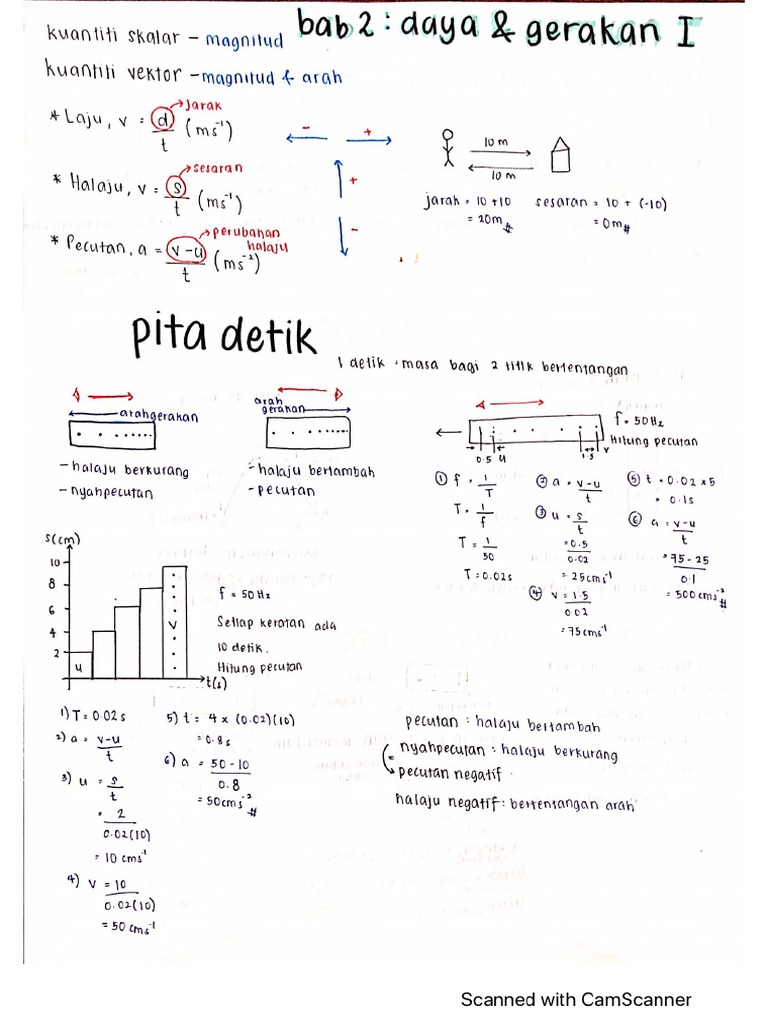 bab 2 : daya & gerakan I
kuantiti skalar - magnitud
kuantiti vektor - magnitud & arah
* Laju, v = d/t (ms⁻¹)
jarak
* Halaju, v = s/t (ms⁻¹)
sesaran
* Pecutan, a = v-u/t (ms⁻²)
perubahan halaju
- +
+
-
10 m
10 m
jarak = 10 + 10
= 20m #
sesaran = 10 + (-10)
= 0m #
pita detik
1 detik = masa bagi 2 titik bertentangan
arah gerakan
- halaju berkurang
- nyahpecutan
arah
gerakan
- halaju bertambah
- pecutan
f = 50Hz
Hitung pecutan
0.5 u
1.5 v
① f = 1/T
T = 1/f
T = 1/50
T = 0.02s
② a = v-u/t
③ u = s/t
= 0.5/0.02
= 25cms⁻¹
④ v = 1.5/0.02
= 75cms⁻¹
⑤ t = 0.02 x 5
= 0.1s
⑥ a = v-u/t
= 75-25/0.1
= 500 cms⁻² #
s(cm)
10
8
6
4
2
u
v
t(s)
f = 50Hz
Setiap keratan ada
10 detik.
Hitung pecutan
1) T = 0.02s
2) a = v-u/t
3) u = s/t
= 2/0.02(10)
= 10 cms⁻¹
4) v = 10/0.02(10)
= 50 cms⁻¹
5) t = 4 x (0.02)(10)
= 0.8s
6) a = 50-10/0.8
= 50cms⁻² #
pecutan : halaju bertambah
nyahpecutan : halaju berkurang
pecutan negatif
halaju negatif : bertentangan arah
Scanned with CamScanner